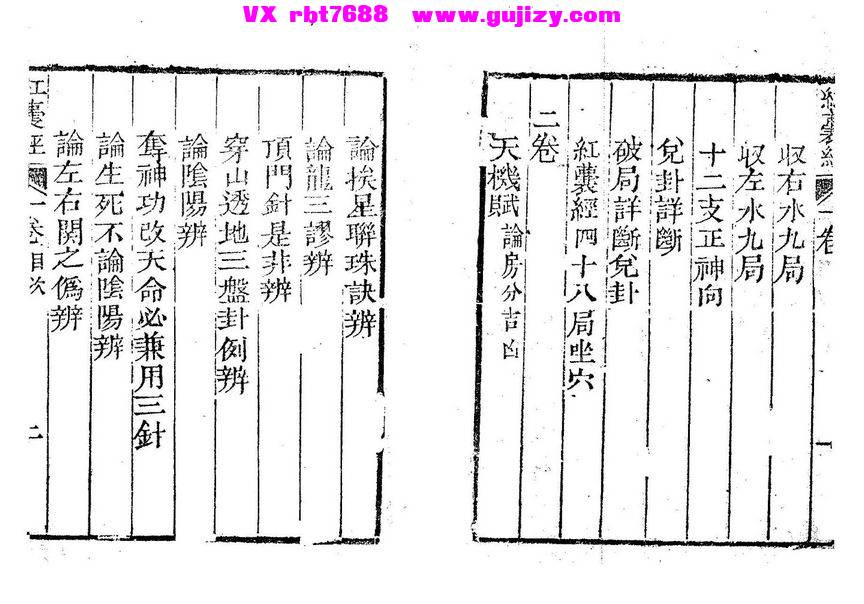 VX rbt7688 www.gujizy.com
紅囊經 一卷
収右水九局
収左水九局
十二支正神向
兌卦詳斷
破局詳斷兌卦
紅囊經四十八局坐穴
二卷
天機賦 論房分吉凶
一
論挨星聯珠訣辨
論龍三謬辨
頂門針是非辨
穿山透地三盤卦例辨
論陰陽辨
奪神功改天命必兼用三針
論生死不論陰陽辨
論左右関之偽辨
紅囊經 一卷目次
二